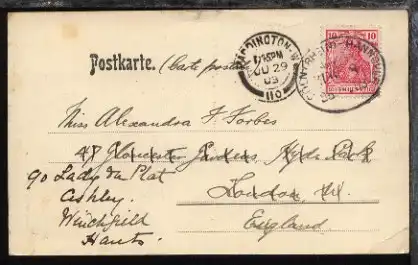 Postkarte. (Carte postale)
PADDINGTON-W
15PM
JU 29
03
110
10 10
Miss Alexandra F. Forbes
47 Gloucester Gardens, Hyde Park
London, W.
England
c/o Lady du Plat
Ashley.
Winchfield
Hants.